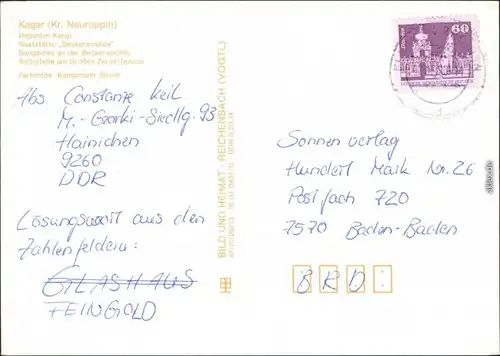 Kagar (Kr. Neuruppin)
Repenter Kanal
Gaststätte "Beckersmühle"
Bungalows an der Beckersmühle
Badestelle am Großen Zermittensee
Farbfotos: Kampmann, Berlin
Abs Constanze Keil
M.-Gorki-Siedlg. 93
Hainichen
9260
DDR
Lösungswort aus den
Zahlenfeldern:
GLASHAUS
FEINGOLD
BILD UND HEIMAT · REICHENBACH (VOGTL)
60
Sonnenverlag
Hundert Mark Nr. 26
Postfach 720
7570 Baden-Baden
BRD: